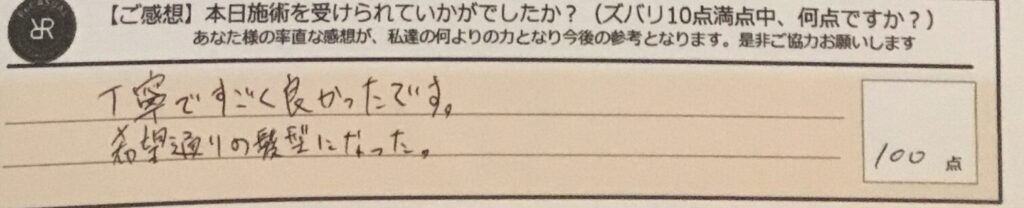 【ご感想】本日施術を受けられていかがでしたか？（ズバリ10点満点中、何点ですか？）
あなた様の率直な感想が、私達の何よりの力となり今後の参考となります。是非ご協力お願いします
丁寧ですごく良かったです。
希望通りの髪型になった。
100点